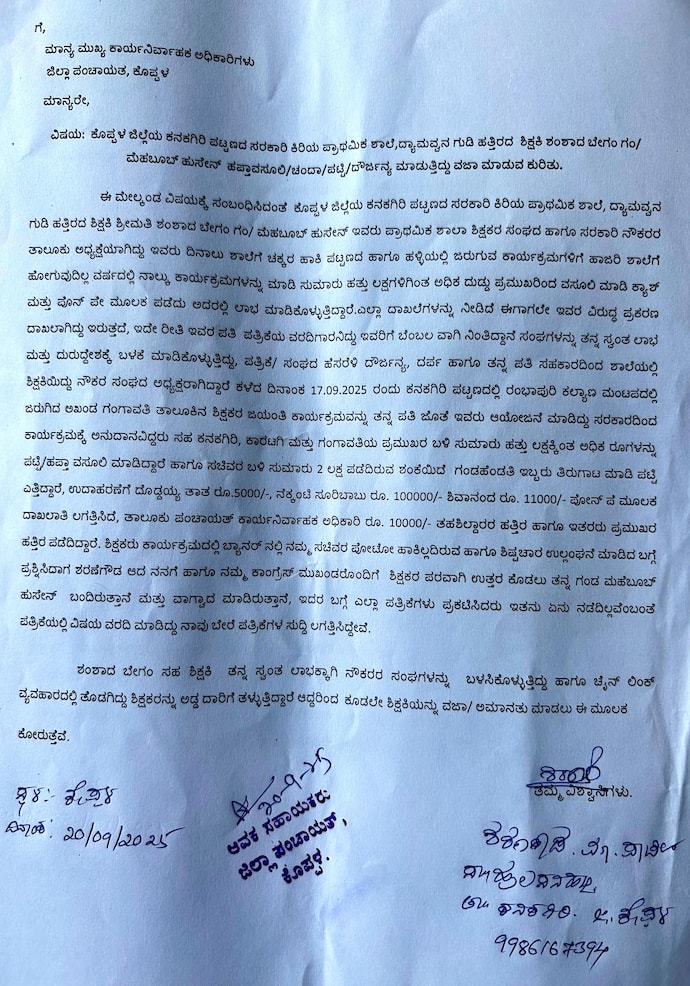 ಗೆ,
ಮಾನ್ಯ ಮುಖ್ಯ ಕಾರ್ಯನಿರ್ವಾಹಕ ಅಧಿಕಾರಿಗಳು
ಜಿಲ್ಲಾ ಪಂಚಾಯತ, ಕೊಪ್ಪಳ
ಮಾನ್ಯರೇ,
ವಿಷಯ: ಕೊಪ್ಪಳ ಜಿಲ್ಲೆಯ ಕನಕಗಿರಿ ಪಟ್ಟಣದ ಸರಕಾರಿ ಕಿರಿಯ ಪ್ರಾಥಮಿಕ ಶಾಲೆ,ದ್ಯಾಮವ್ವನ ಗುಡಿ ಹತ್ತಿರದ ಶಿಕ್ಷಕಿ ಶಂಶಾದ ಬೇಗಂ ಗಂ/
ಮೆಹಬೂಬ್ ಹುಸೇನ್ ಹಪ್ತಾವಸೂಲಿ/ಚಂದಾ/ಪಟ್ಟಿ/ದೌರ್ಜನ್ಯ ಮಾಡುತ್ತಿದ್ದು ವಜಾ ಮಾಡುವ ಕುರಿತು.
ಈ ಮೇಲ್ಕಂಡ ವಿಷಯಕ್ಕೆ ಸಂಬಂಧಿಸಿದಂತೆ ಕೊಪ್ಪಳ ಜಿಲ್ಲೆಯ ಕನಕಗಿರಿ ಪಟ್ಟಣದ ಸರಕಾರಿ ಕಿರಿಯ ಪ್ರಾಥಮಿಕ ಶಾಲೆ, ದ್ಯಾಮವ್ವನ
ಗುಡಿ ಹತ್ತಿರದ ಶಿಕ್ಷಕಿ ಶ್ರೀಮತಿ ಶಂಶಾದ ಬೇಗಂ ಗಂ/ ಮೆಹಬೂಬ್ ಹುಸೇನ್ ಇವರು ಪ್ರಾಥಮಿಕ ಶಾಲಾ ಶಿಕ್ಷಕರ ಸಂಘದ ಹಾಗೂ ಸರಕಾರಿ ನೌಕರರ
ತಾಲೂಕು ಅಧ್ಯಕ್ಷೆಯಾಗಿದ್ದು ಇವರು ದಿನಾಲು ಶಾಲೆಗೆ ಚಕ್ಕರ ಹಾಕಿ ಪಟ್ಟಣದ ಹಾಗೂ ಹಳ್ಳಿಯಲ್ಲಿ ಜರುಗುವ ಕಾರ್ಯಕ್ರಮಗಳಿಗೆ ಹಾಜರಿ ಶಾಲೆಗೆ
ಹೋಗುವುದಿಲ್ಲ ವರ್ಷದಲ್ಲಿ ನಾಲ್ಕು ಕಾರ್ಯಕ್ರಮಗಳನ್ನು ಮಾಡಿ ಸುಮಾರು ಹತ್ತು ಲಕ್ಷಗಳಿಗಿಂತ ಅಧಿಕ ದುಡ್ಡು ಪ್ರಮುಖರಿಂದ ವಸೂಲಿ ಮಾಡಿ ಕ್ಯಾಶ್
ಮತ್ತು ಪೊನ್ ಪೇ ಮೂಲಕ ಪಡೆದು ಅದರಲ್ಲಿ ಲಾಭ ಮಾಡಿಕೊಳ್ಳುತ್ತಿದ್ದಾರೆ.ಎಲ್ಲಾ ದಾಖಲೆಗಳನ್ನು ನೀಡಿದೆ ಈಗಾಗಲೇ ಇವರ ವಿರುದ್ಧ ಪ್ರಕರಣ
ದಾಖಲಾಗಿದ್ದು ಇರುತ್ತದೆ, ಇದೇ ರೀತಿ ಇವರ ಪತಿ ಪತ್ರಿಕೆಯ ವರದಿಗಾರನಿದ್ದು ಇವರಿಗೆ ಬೆಂಬಲ ವಾಗಿ ನಿಂತಿದ್ದಾನೆ ಸಂಘಗಳನ್ನು ತನ್ನ ಸ್ವಂತ ಲಾಭ
ಮತ್ತು ದುರುದ್ದೇಶಕ್ಕೆ ಬಳಕೆ ಮಾಡಿಕೊಳ್ಳುತ್ತಿದ್ದು, ಪತ್ರಿಕೆ/ ಸಂಘದ ಹೆಸರೆಳಿ ದೌರ್ಜನ್ಯ, ದರ್ಪ ಹಾಗೂ ತನ್ನ ಪತಿ ಸಹಕಾರದಿಂದ ಶಾಲೆಯಲ್ಲಿ
ಶಿಕ್ಷಕಿಯಿದ್ದು ನೌಕರ ಸಂಘದ ಅಧ್ಯಕ್ಷರಾಗಿದ್ದಾರೆ ಕಳೆದ ದಿನಾಂಕ 17.09.2025 ರಂದು ಕನಕಗಿರಿ ಪಟ್ಟಣದಲ್ಲಿ ರಂಭಾಪುರಿ ಕಲ್ಯಾಣ ಮಂಟಪದಲ್ಲಿ
ಜರುಗಿದ ಅಖಂಡ ಗಂಗಾವತಿ ತಾಲೂಕಿನ ಶಿಕ್ಷಕರ ಜಯಂತಿ ಕಾರ್ಯಕ್ರಮವನ್ನು ತನ್ನ ಪತಿ ಜೊತೆ ಇವರು ಆಯೋಜನೆ ಮಾಡಿದ್ದು ಸರಕಾರದಿಂದ
ಕಾರ್ಯಕ್ರಮಕ್ಕೆ ಅನುದಾನವಿದ್ದರು ಸಹ ಕನಕಗಿರಿ, ಕಾರಟಗಿ ಮತ್ತು ಗಂಗಾವತಿಯ ಪ್ರಮುಖರ ಬಳಿ ಸುಮಾರು ಹತ್ತು ಲಕ್ಷಕ್ಕಿಂತ ಅಧಿಕ ರೂಗಳನ್ನು
ಪಟ್ಟಿ/ಹಪ್ತಾ ವಸೂಲಿ ಮಾಡಿದ್ದಾರೆ ಹಾಗೂ ಸಚಿವರ ಬಳಿ ಸುಮಾರು 2 ಲಕ್ಷ ಪಡೆದಿರುವ ಶಂಕೆಯಿದೆ ಗಂಡಹೆಂಡತಿ ಇಬ್ಬರು ತಿರುಗಾಟ ಮಾಡಿ ಪಟ್ಟಿ
ಎತ್ತಿದ್ದಾರೆ, ಉದಾಹರಣೆಗೆ ದೊಡ್ಡಯ್ಯ ತಾತ ರೂ.5000/-, ನೆಕ್ಕಂಟಿ ಸೂರಿಬಾಬು ರೂ. 100000/- ಶಿವಾನಂದ ರೂ. 11000/- ಪೋನ್ ಪೆ ಮೂಲಕ
ದಾಖಲಾತಿ ಲಗತ್ತಿಸಿದೆ, ತಾಲೂಕು ಪಂಚಾಯತ್ ಕಾರ್ಯನಿರ್ವಾಹಕ ಅಧಿಕಾರಿ ರೂ. 10000/- ತಹಶಿಲ್ದಾರರ ಹತ್ತಿರ ಹಾಗೂ ಇತರರು ಪ್ರಮುಖರ
ಹತ್ತಿರ ಪಡೆದಿದ್ದಾರೆ. ಶಿಕ್ಷಕರು ಕಾರ್ಯಕ್ರಮದಲ್ಲಿ ಬ್ಯಾನರ್ ನಲ್ಲಿ ನಮ್ಮ ಸಚಿವರ ಪೋಟೋ ಹಾಕಿಲ್ಲದಿರುವ ಹಾಗೂ ಶಿಷ್ಟಚಾರ ಉಲ್ಲಂಘನೆ ಮಾಡಿದ ಬಗ್ಗೆ
ಪ್ರಶ್ನಿಸಿದಾಗ ಶರಣೆಗೌಡ ಆದ ನನಗೆ ಹಾಗೂ ನಮ್ಮ ಕಾಂಗ್ರೆಸ್ ಮುಖಂಡರೊಂದಿಗೆ ಶಿಕ್ಷಕರ ಪರವಾಗಿ ಉತ್ತರ ಕೊಡಲು ತನ್ನ ಗಂಡ ಮಹಬೂಬ್
ಹುಸೇನ್ ಬಂದಿರುತ್ತಾನೆ ಮತ್ತು ವಾಗ್ವಾದ ಮಾಡಿರುತ್ತಾನೆ, ಇದರ ಬಗ್ಗೆ ಎಲ್ಲಾ ಪತ್ರಿಕೆಗಳು ಪ್ರಕಟಿಸಿದರು ಇತನು ಏನು ನಡೆದಿಲ್ಲವೆಂಬಂತೆ
ಪತ್ರಿಕೆಯಲ್ಲಿ ವಿಷಯ ವರದಿ ಮಾಡಿದ್ದು ನಾವು ಬೇರೆ ಪತ್ರಿಕೆಗಳ ಸುದ್ದಿ ಲಗತ್ತಿಸಿದ್ದೇವೆ.
ಶಂಶಾದ ಬೇಗಂ ಸಹ ಶಿಕ್ಷಕಿ ತನ್ನ ಸ್ವಂತ ಲಾಭಕ್ಕಾಗಿ ನೌಕರರ ಸಂಘಗಳನ್ನು ಬಳಸಿಕೊಳ್ಳುತ್ತಿದ್ದು ಹಾಗೂ ಚೈನ್ ಲಿಂಕ್
ವ್ಯವಹಾರದಲ್ಲಿ ತೊಡಗಿದ್ದು ಶಿಕ್ಷಕರನ್ನು ಅಡ್ಡ ದಾರಿಗೆ ತಳ್ಳುತ್ತಿದ್ದಾರೆ ಆದ್ದರಿಂದ ಕೂಡಲೇ ಶಿಕ್ಷಕಿಯನ್ನು ವಜಾ/ ಅಮಾನತು ಮಾಡಲು ಈ ಮೂಲಕ
ಕೋರುತ್ತೆವೆ.
ತಮ್ಮ ವಿಶ್ವಾಸಿಗಳು.
ಸ್ಥಳ:- ಕೊಪ್ಪಳ
ದಿನಾಂಕ: 20/09/2025
ಆವಕ ಸಹಾಯಕರು
ಜಿಲ್ಲಾ ಪಂಚಾಯತ್,
ಕೊಪ್ಪಳ.
ಶರಣೇಗೌಡ
ತಾ|| ಕನಕಗಿರಿ. ಜಿ. ಕೊಪ್ಪಳ
9986167394